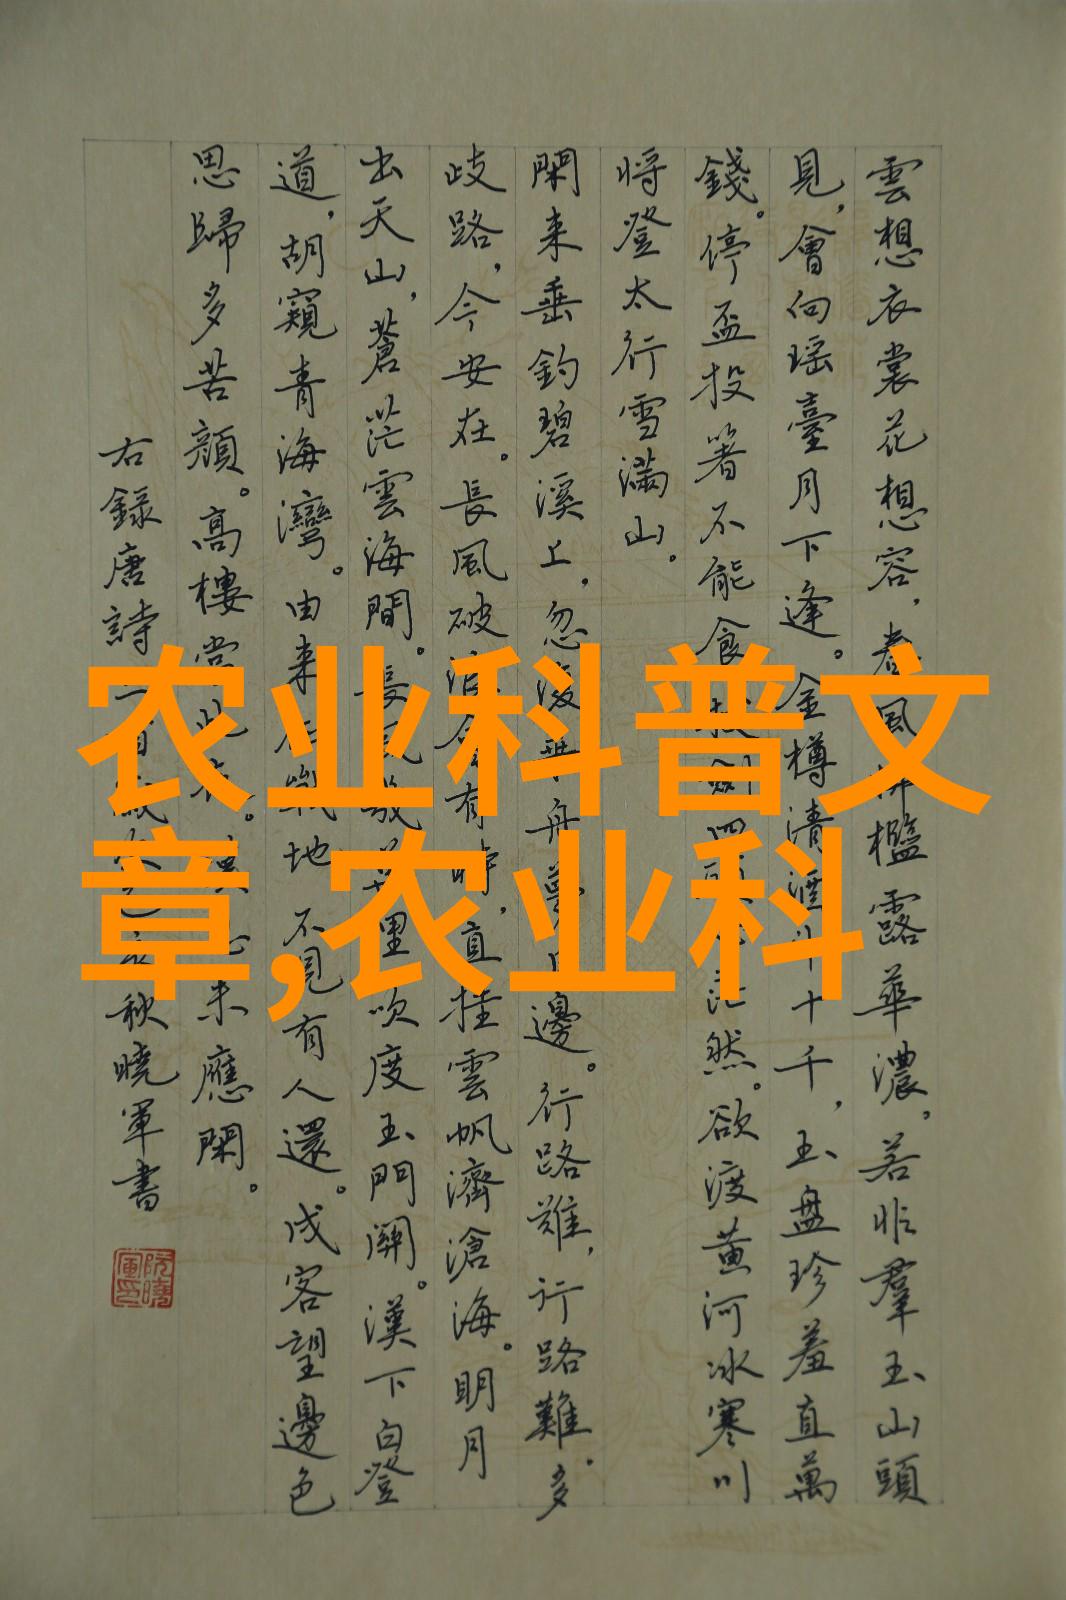 雲想衣裳花想容,春風拂檻露華濃。若非羣玉山頭
見,會向瑶臺月下逢。金樽清酒斗十千,玉盤珍羞直萬
錢。停盃投箸不能食拔劍四顧心茫然。欲渡黃河冰寒川
将登太行雪滿山。
閑来垂釣碧溪上,忽復乘舟夢日邊。行路難,行路難。多
歧路,今安在。長風破浪會有時,直挂雲帆濟滄海。明月
出天山,蒼茫雲海間。長風幾萬里吹度玉門關。漢下白登
道,胡窺青海灣。由来征戰地不見有人還。戍客望邊色
思歸多苦顏。高樓當此夜。嘆息未應閑。
右録唐詩 秋曉軍書
阮曉軍印
农业科普文
章,农业科